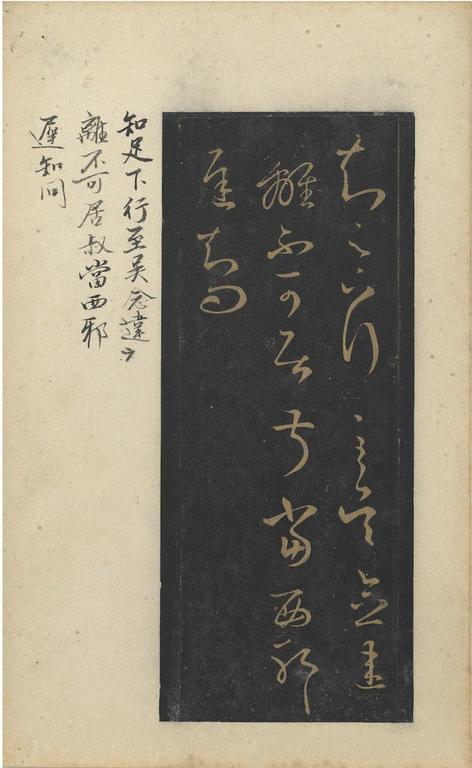 知足下行至吴念違
離不可居叔當西耶
遲知問
知足下行至吴念違
離不可居叔當西邪
遲知问